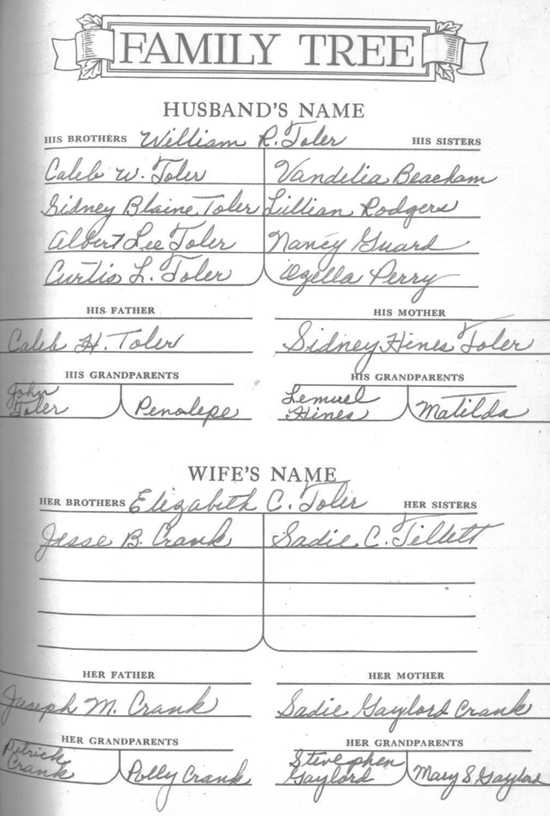 FAMILY TREE
HUSBAND'S NAME
HIS BROTHERS William R. Toler HIS SISTERS
Caleb W. Toler Vandelia Beacham
Sidney Blaine Toler Lillian Rodgers
Albert Lee Toler Nancy Guard
Curtis L. Toler Ozella Perry
HIS FATHER HIS MOTHER
Caleb H. Toler Sidney Hines Toler
HIS GRANDPARENTS HIS GRANDPARENTS
John Lemuel
Toler Penolepe Hines Matilda
WIFE'S NAME
HER BROTHERS Elizabeth C. Toler HER SISTERS
Jesse B. Crank Sadie C. Tillett
HER FATHER HER MOTHER
Joseph M. Crank Sadie Gaylord Crank
HER GRANDPARENTS HER GRANDPARENTS
Patrick Stevephen
Crank Polly Crank Gaylord Mary S Gaylord